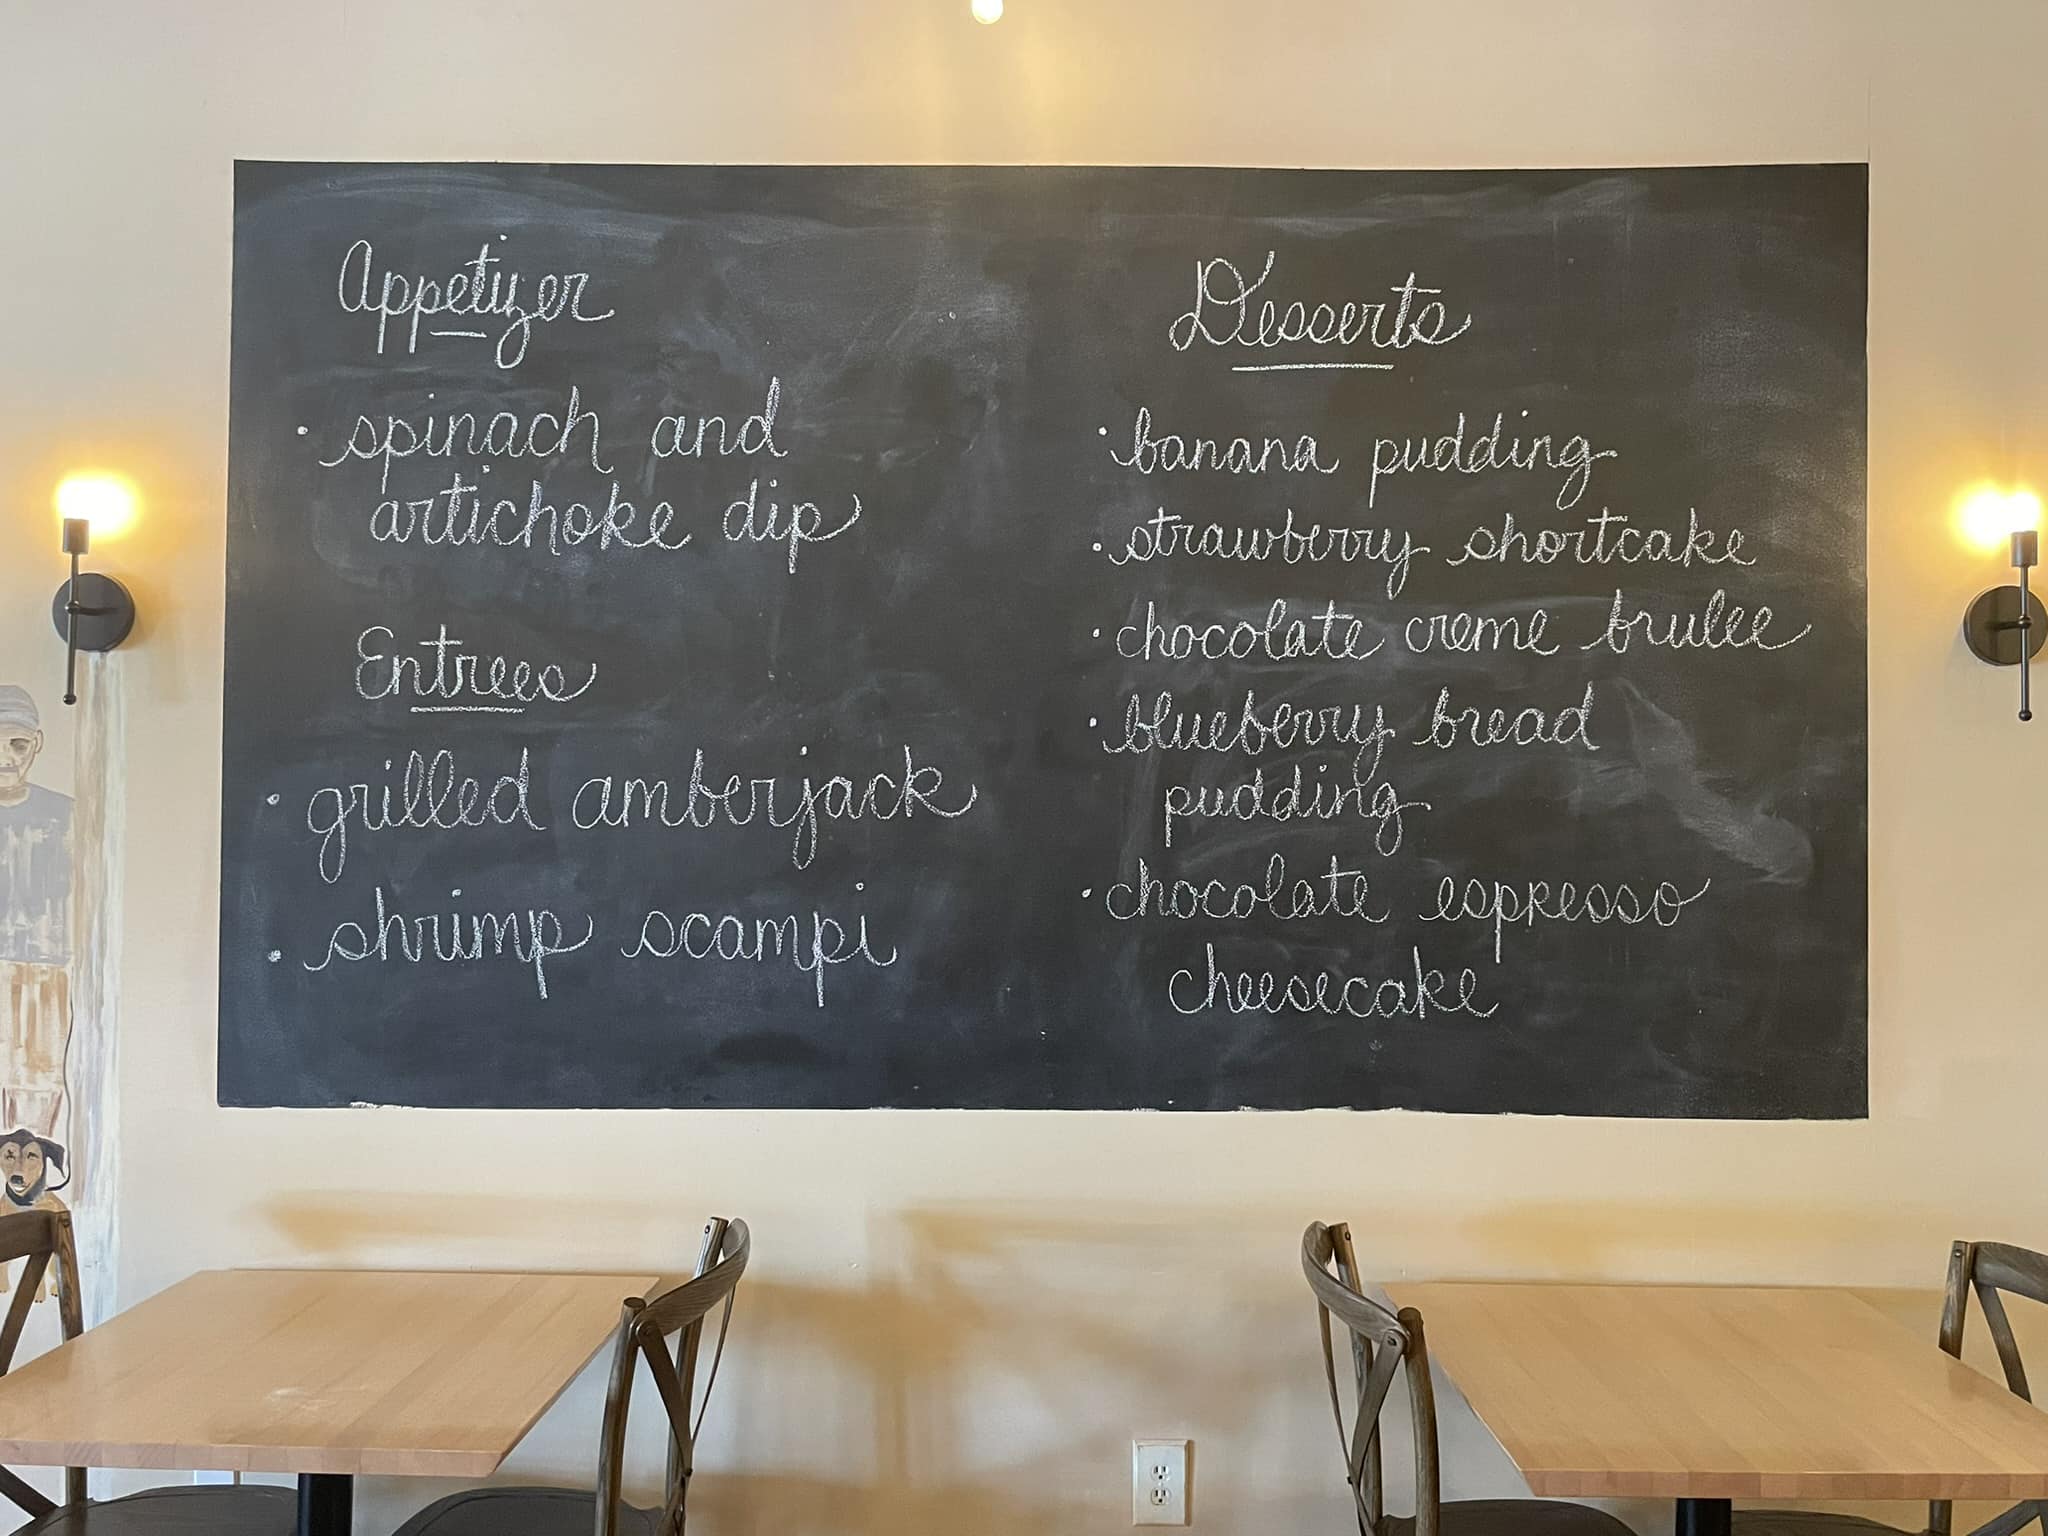 Appetizer
• spinach and
artichoke dip
Entrees
• grilled amberjack
• shrimp scampi
Desserts
• banana pudding
• strawberry shortcake
• chocolate creme brulee
• blueberry bread
pudding
• chocolate espresso
cheesecake